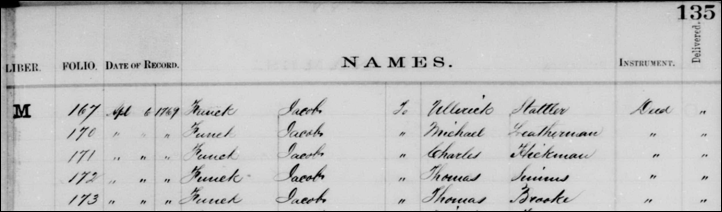 135
LIBER. FOLIO. DATE OF RECORD. NAMES. INSTRUMENT. Delivered.
M 167 Apl 6 1769 Funck Jacob To Ullerick Stattler Deed "
170 " " " Funck Jacob " Michael Leatherman " "
171 " " " Funck Jacob " Charles Hickman " "
172 " " " Funck Jacob " Thomas " "
173 " " " Funck Jacob " Thomas Brooke " "